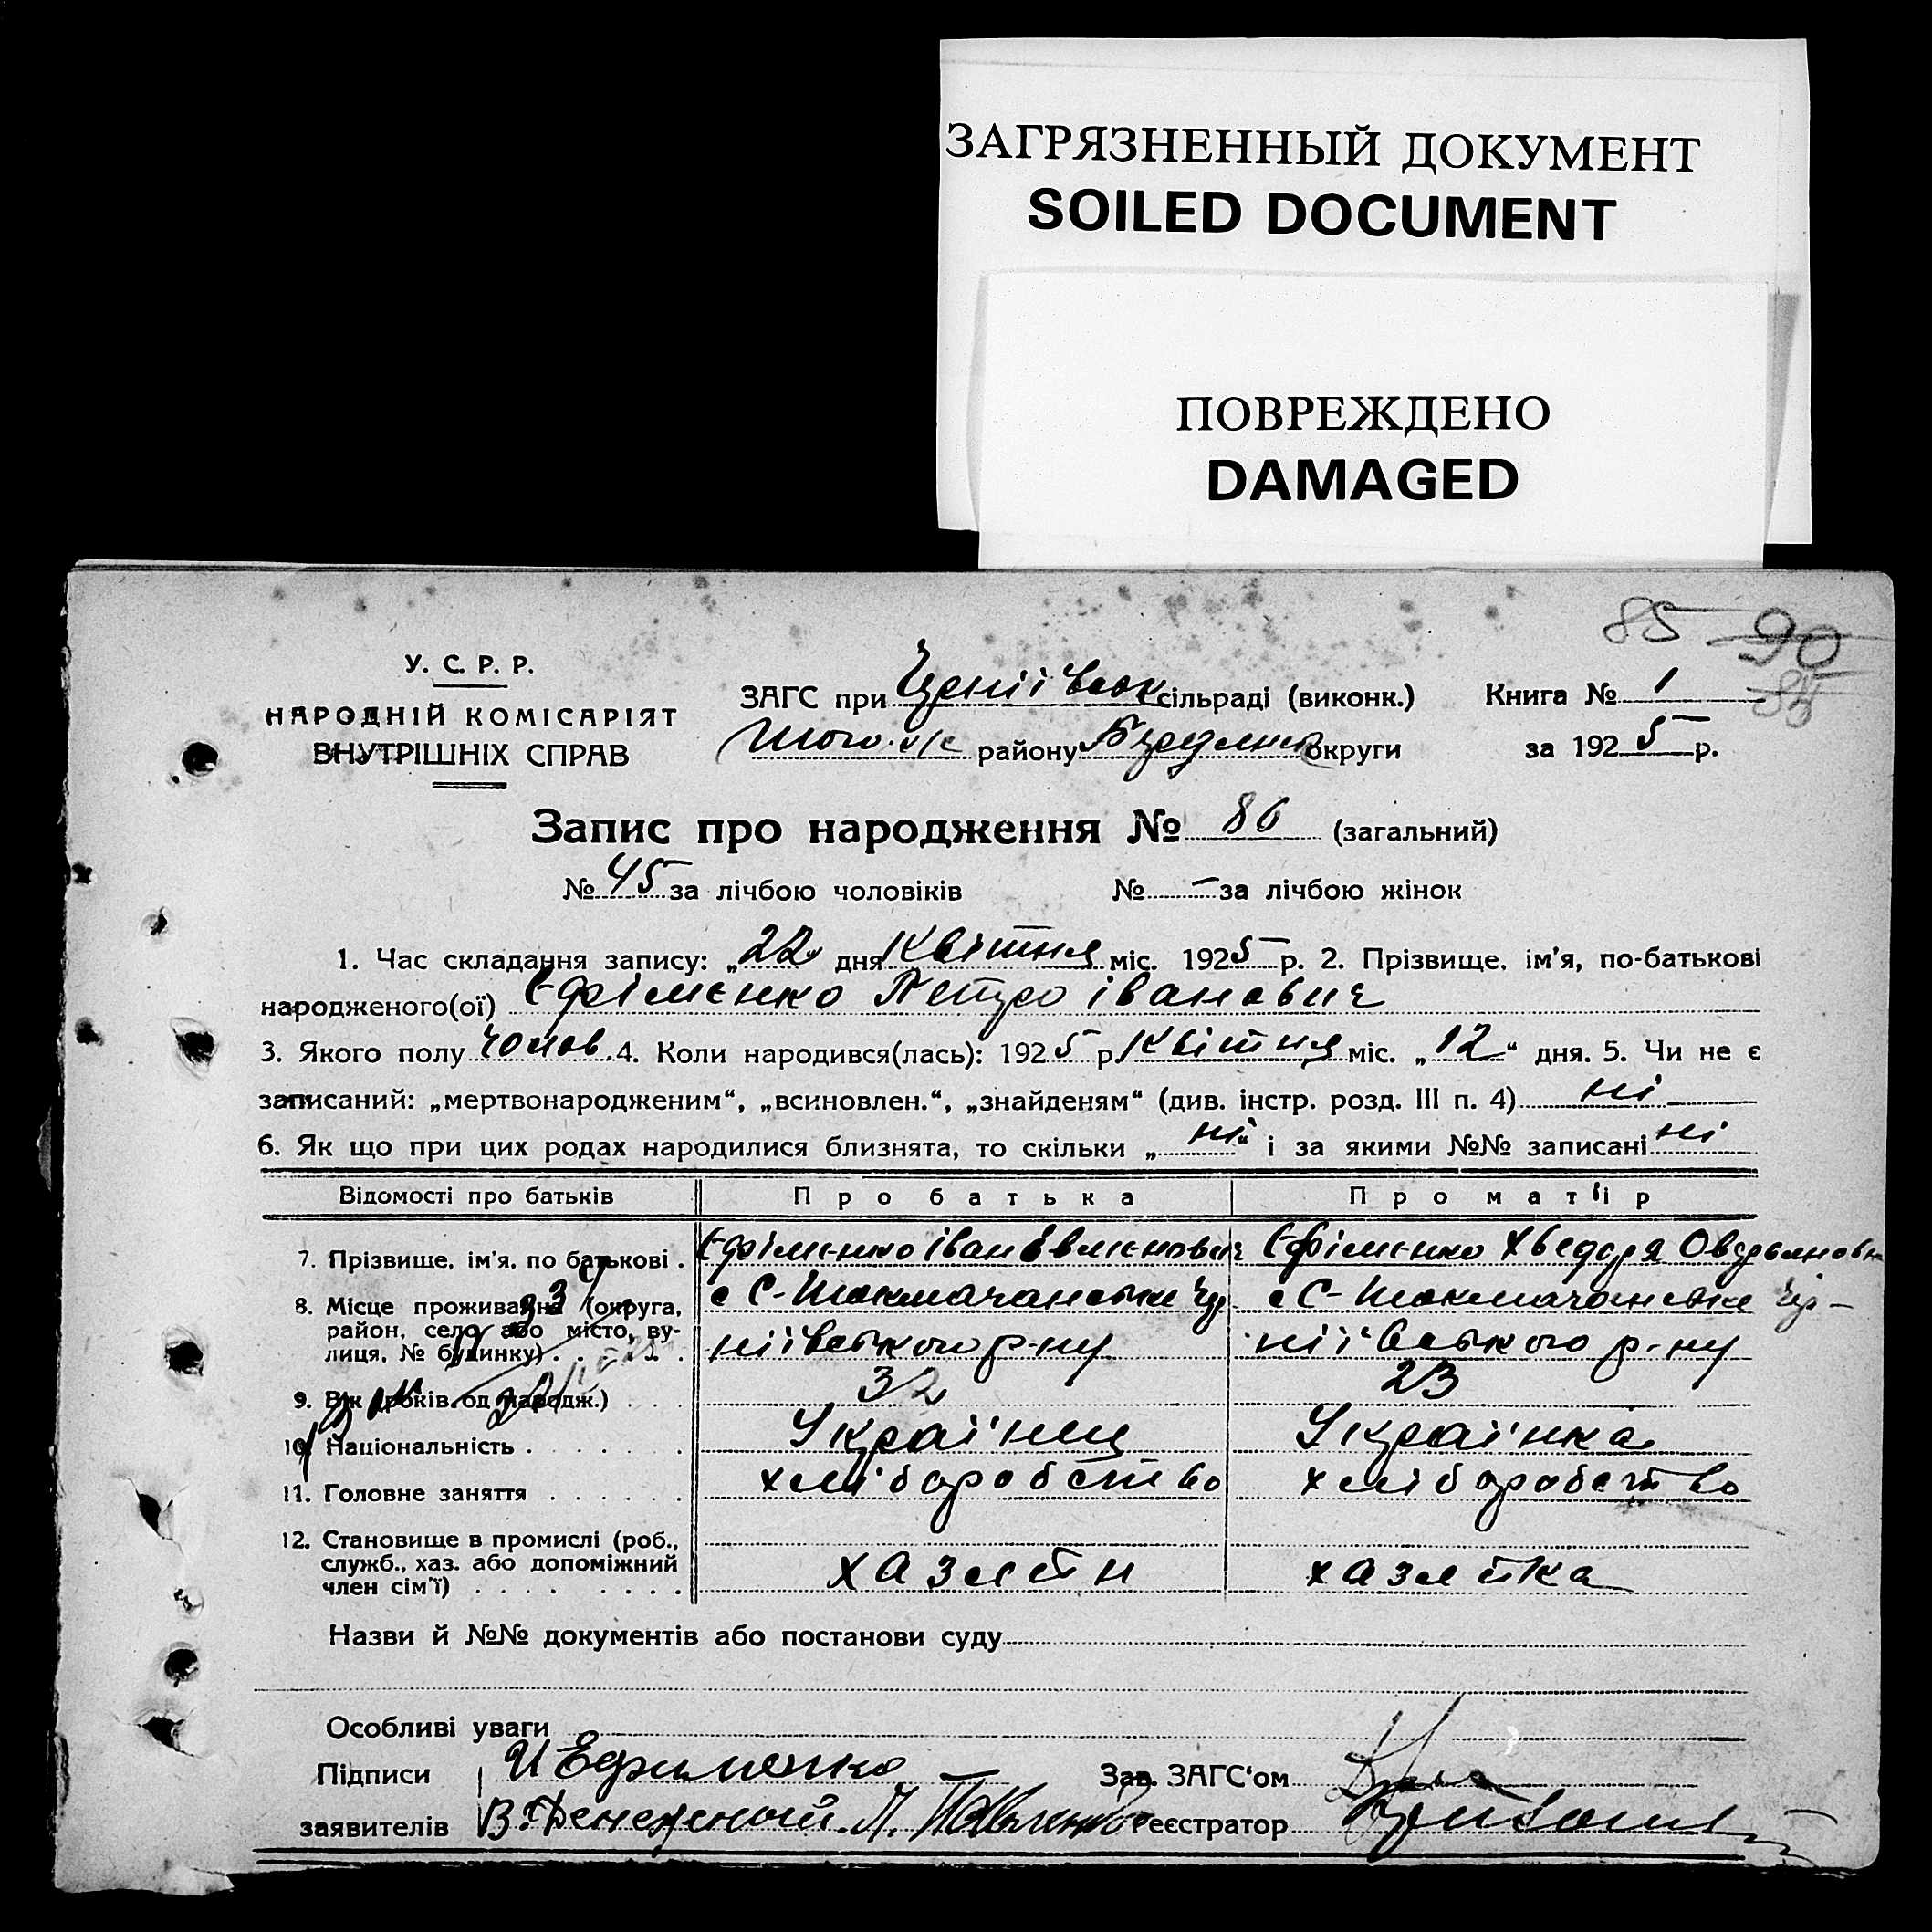 ЗАГРЯЗНЕННЫЙ ДОКУМЕНТ
SOILED DOCUMENT
ПОВРЕЖДЕНО
DAMAGED
85 90
85
У. С. Р. Р.
НАРОДНІЙ КОМІСАРІЯТ
ВНУТРІШНІХ СПРАВ
ЗАГС при сільраді (виконк.) Книга № 1
району округи за 1925 р.
Запис про народження № 86 (загальний)
№ 45 за лічбою чоловіків № - за лічбою жінок
1. Час складання запису: „22 дня Квітня міс. 1925 р. 2. Прізвище, ім'я, по-батькові
народженого(ої) Єфіменко Петро Іванович
3. Якого полу чолов. 4. Коли народився(лась): 1925 р. Квітня міс. „12“ дня. 5. Чи не є
записаний: „мертвонародженим“, „всиновлен.“, „знайденям“ (див. інстр. розд. III п. 4) ні
6. Як що при цих родах народилися близнята, то скільки „ні“ і за якими №№ записані ні
Відомості про батьків Про батька Про матір
7. Прізвище, ім'я, по батькові . Єфіменко Іван Єфіменко Хведора
8. Місце проживання (округа, с С-Шокмачанське Чер с С-Шокмачанське Чер-
район, село або місто, ву-
лиця, № будинку) . . . . . нііївського р-ну нііївського р-ну
9. Вік (років од народж.) . . . 32 23
10. Національність . . . . . . Українец Українка
11. Головне заняття . . . . . . хліборобство хліборобство
12. Становище в промислі (роб.,
служб., хаз. або допоміжний
член сім'ї) . . . . . . . . . хазяїн хазяйка
Назви й №№ документів або постанови суду
Особливі уваги
Підписи И Ефименко Зав. ЗАГС'ом
заявителів В. Денежный. П. Павленко Реєстратор